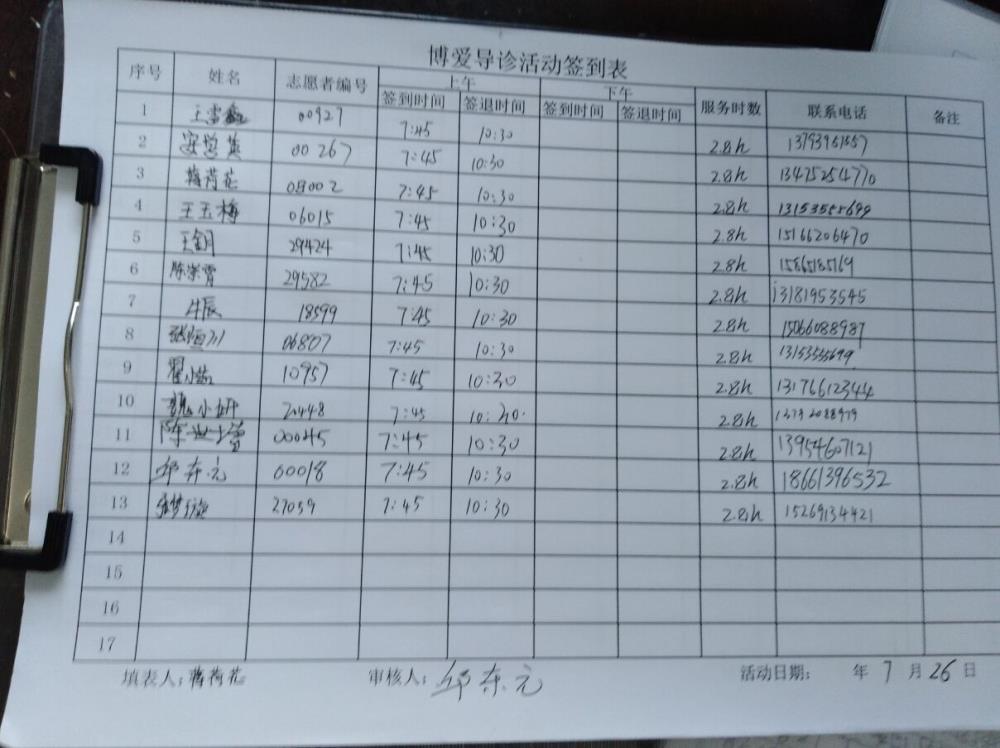 博爱导诊活动签到表
序号 姓名 志愿者编号 上午 下午 服务时数 联系电话 备注
签到时间 签退时间 签到时间 签退时间
1 00927 7:45 10:30 2.8h
2 00267 7:45 10:30 2.8h 13475254770
3 蒋荷花 08002 7:45 10:30 2.8h
4 王玉梅 06015 7:45 10:30 2.8h 15166206470
5 王钥 29424 7:45 10:30 2.8h 15865185769
6 陈崇霄 29582 7:45 10:30 2.8h 13181953545
7 牛辰 18599 7:45 10:30 2.8h 15066088987
8 张恒川 06807 7:45 10:30 2.8h
9 10957 7:45 10:30 2.8h 13176612344
10 魏小妍 7:45 2.8h
11 00045 7:45 10:30 2.8h 13954607121
12 邱东元 00018 7:45 10:30 2.8h 18661396532
13 27059 7:45 10:30 2.8h 15269134421
14
15
16
17
填表人:蒋荷花 审核人:邱东元 活动日期: 年 7 月 26 日